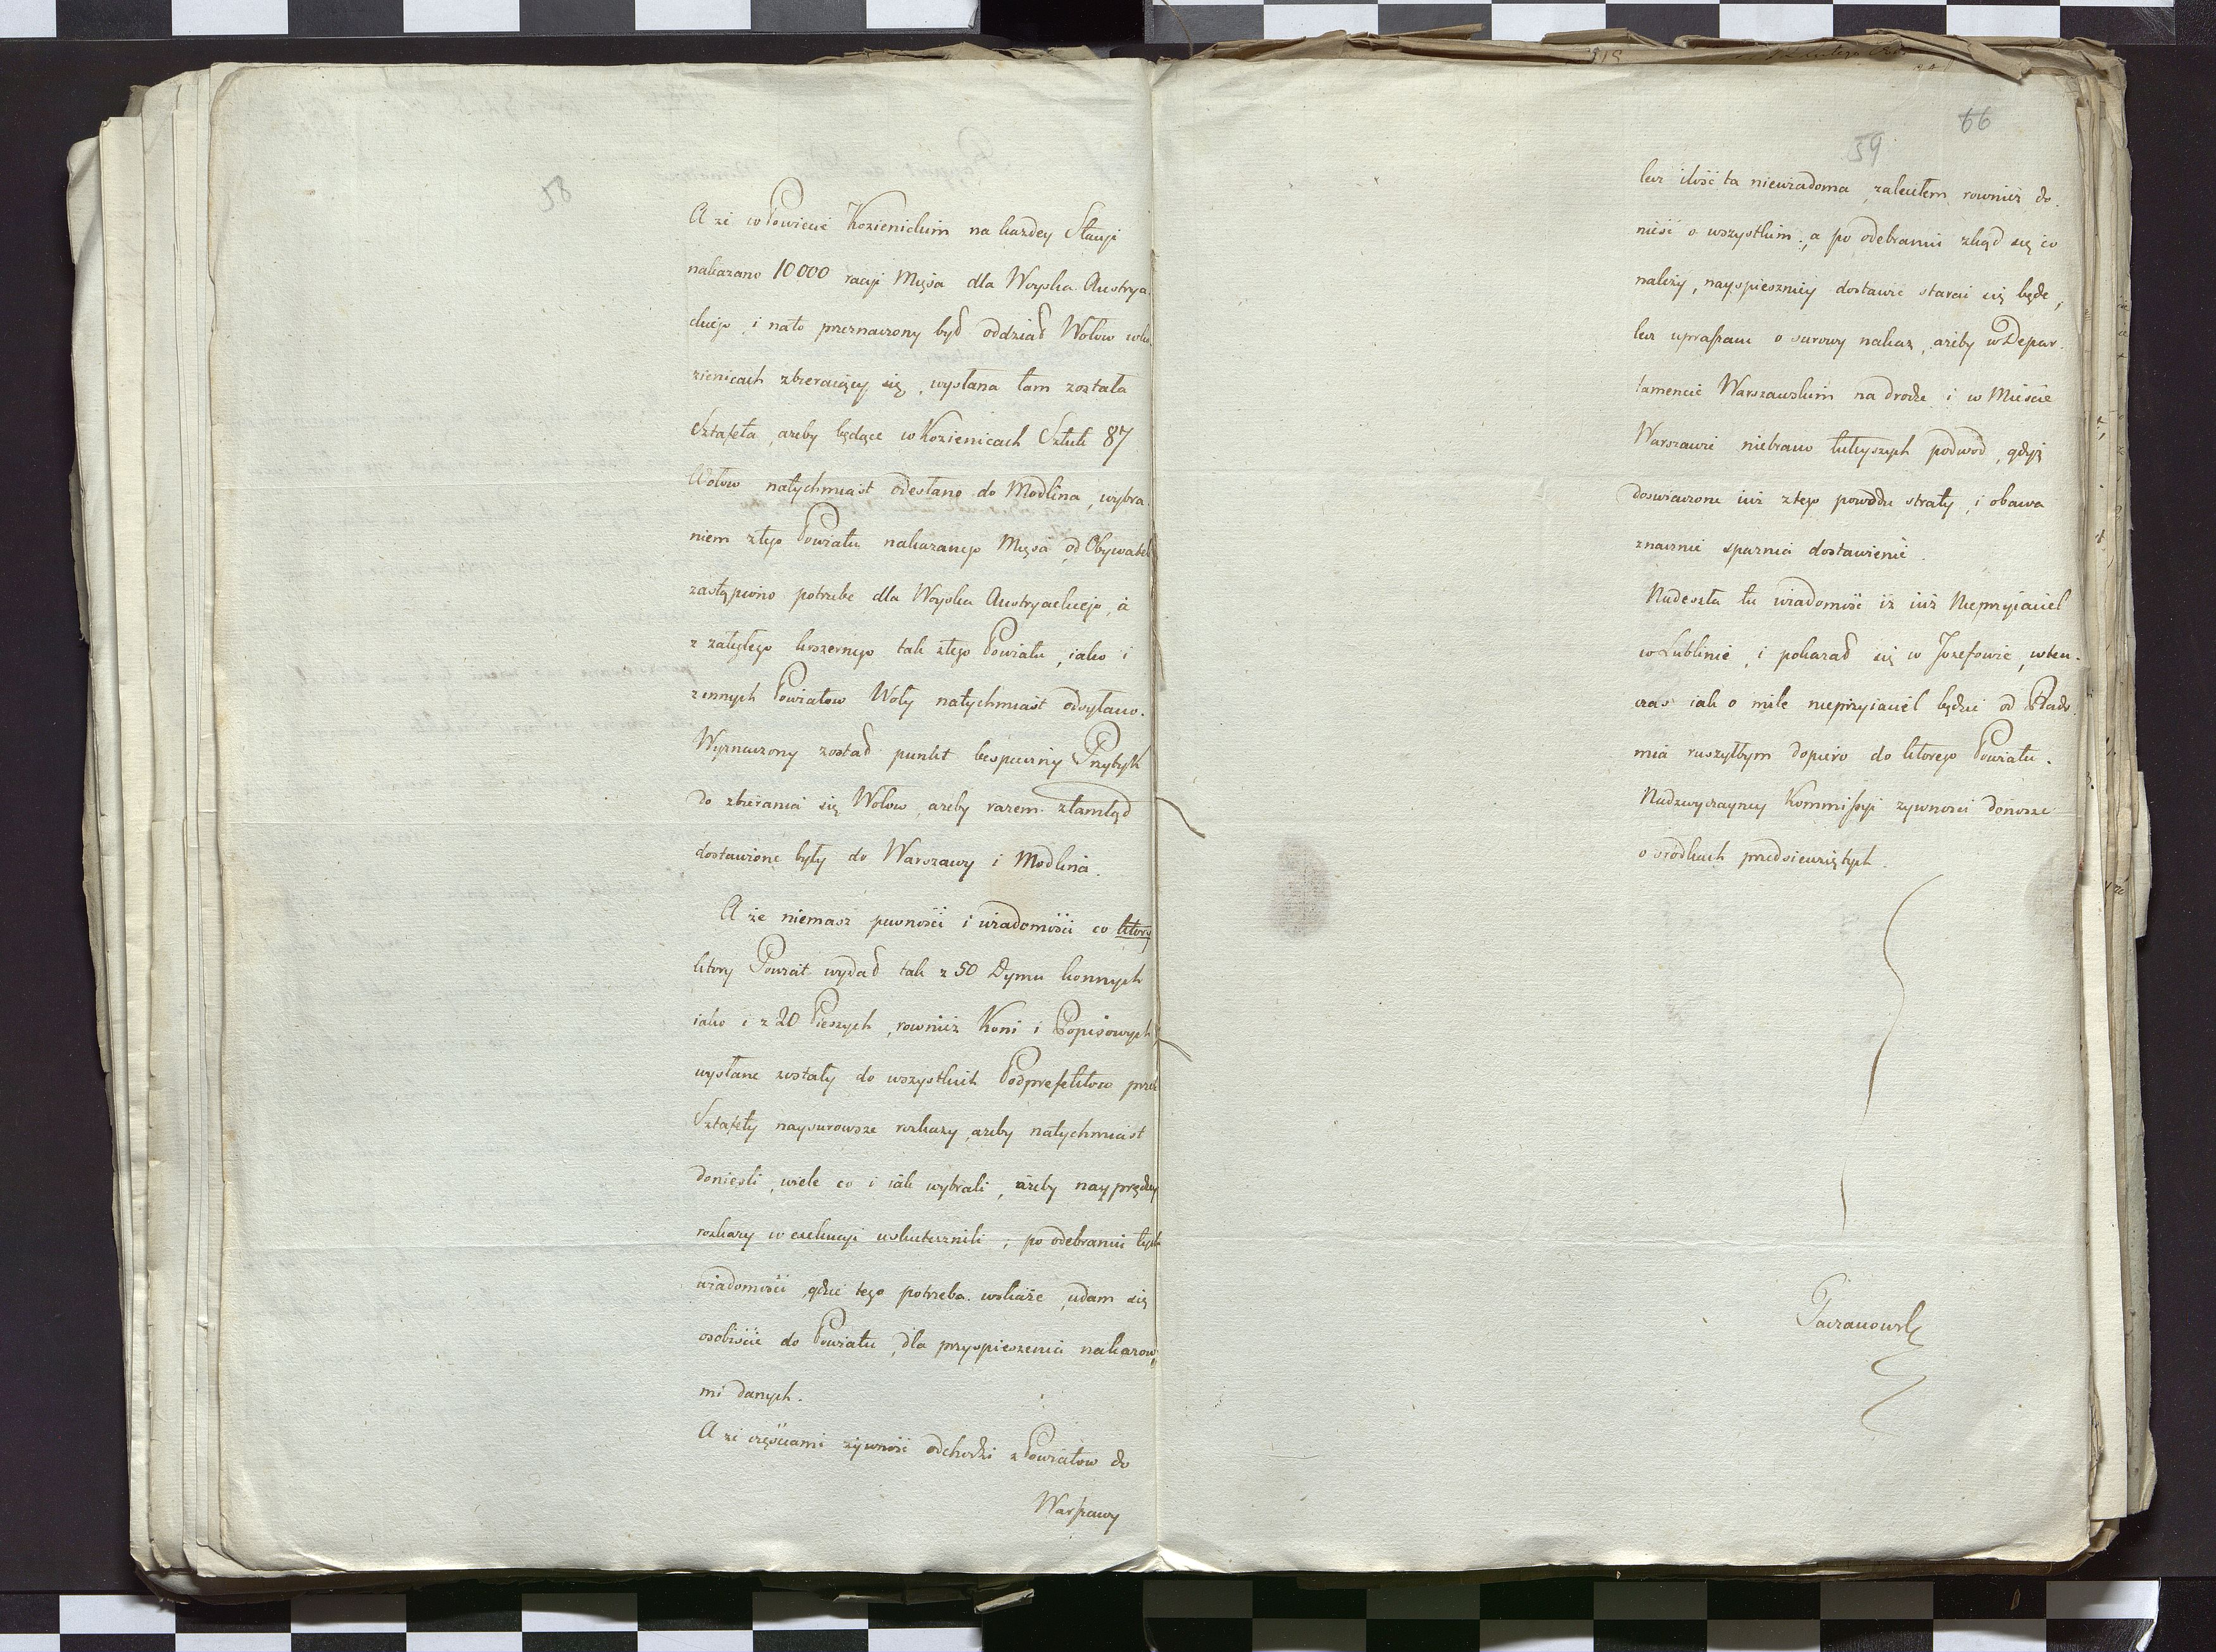 58
A że w Powiecie Kozienickim na każdey Stacyi
nakazano 10000 racyi Mięsa dla Woyska Austrya-
ckiego, i nato przeznaczony był oddział Wołow wko-
zienicach zbieraiący się, wysłana tam została
Sztafeta, ażeby będące w Kozienicach Sztuk 87
Wołow natychmiast odesłano do Modlina, wybra-
niem ztego Powiatu nakazanego Mięsa od Obywateli
zastąpiono potrzebe dla Woyska Austryackiego, a
z zaległego liwerunku tak ztego Powiatu, iako i
z innych Powiatow Woły natychmiast odsyłano.
Wyznaczony został punkt bespieczny Przytyk
do zbierania się Wołow, ażeby razem ztamtąd
dostawione były do Warszawy i Modlina.
A że niemasz pewności i wiadomości co ktory
ktory Powiat wydał tak z 50 Dymu konnych
iako i z 20 Pieszych, rownież Koni i Popisowych,
wysłane zostały do wszystkich Podprefektow przez
Sztafety naysurowsze rozkazy, ażeby natychmiast
doniesli, wiele co i iak wybrali, ażeby nayprędzey
rozkazy w exekucyi uskutecznili; po odebraniu tych
wiadomości, gdzie tego potrzeba wskaże, udam się
osobiście do Powiatu, dla przyspieszenia nakazow,
mi danych.
A że częściami żywność odchodzi z Powiatow do
Warszawy
66
59
lecz ilość ta niewiadoma, zaleciłem rownież do-
nieść o wszystkim, a po odebraniu zkąd się co
należy, nayspieszniey dostawić starać się będe,
lecz upraszam o surowy nakaz, ażeby w Depar-
tamencie Warszawskim na drodze i w Mieście
Warszawie niebrano tuteyszych podwod, gdyż
doswiadczone iuż ztego powodu straty, i obawa
znacznie spaznia dostawienie.
Nadeszła tu wiadomość iż iuż Nieprzyiaciel
w Lublinie, i pokazał się w Jozefowie, wten-
czas iak o mile nieprzyiaciel będzie od Rado-
mia ruszyłbym dopiero do ktorego Powiatu.
Nadzwyczayney Kommissyi żywności donosze
o srodkach przedsięwziętych.